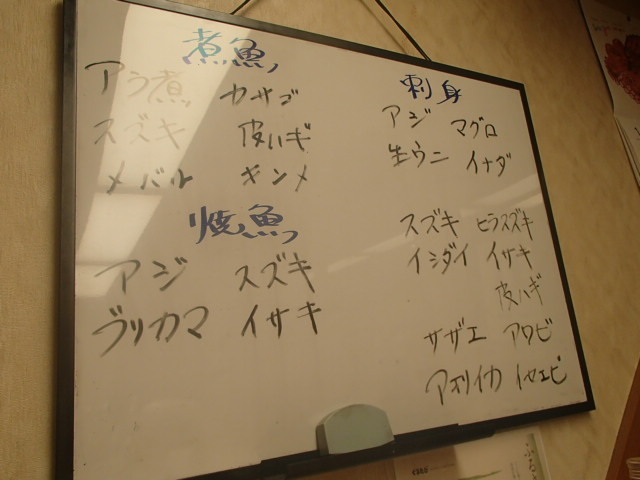 煮魚
アラ煮 カサゴ
スズキ 皮ハギ
メバル キンメ
焼魚
アジ スズキ
ブリカマ イサキ
刺身
アジ マグロ
生ウニ イナダ
スズキ ヒラスズキ
イシダイ イサキ
皮ハギ
サザエ アワビ
アオリイカ イセエビ